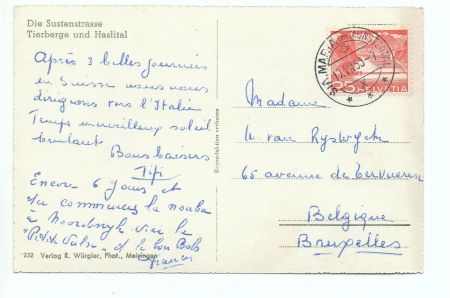 Die Sustenstrasse
Tierberge und Haslital
Après 3 belles journées
en Suisse nous nous
dirigeons vers l'Italie
Temps merveilleux soleil
brulant
Bons baisers
Tifi
Encore 6 jours et
la nouba
à Noordwijk avec le
et le bon Bob
232 Verlag R. Würgler, Phot., Meiringen
Reproduktion verboten
HELVETIA
Madame
van Ryswyck
65 avenue de Tervueren
Belgique
Bruxelles